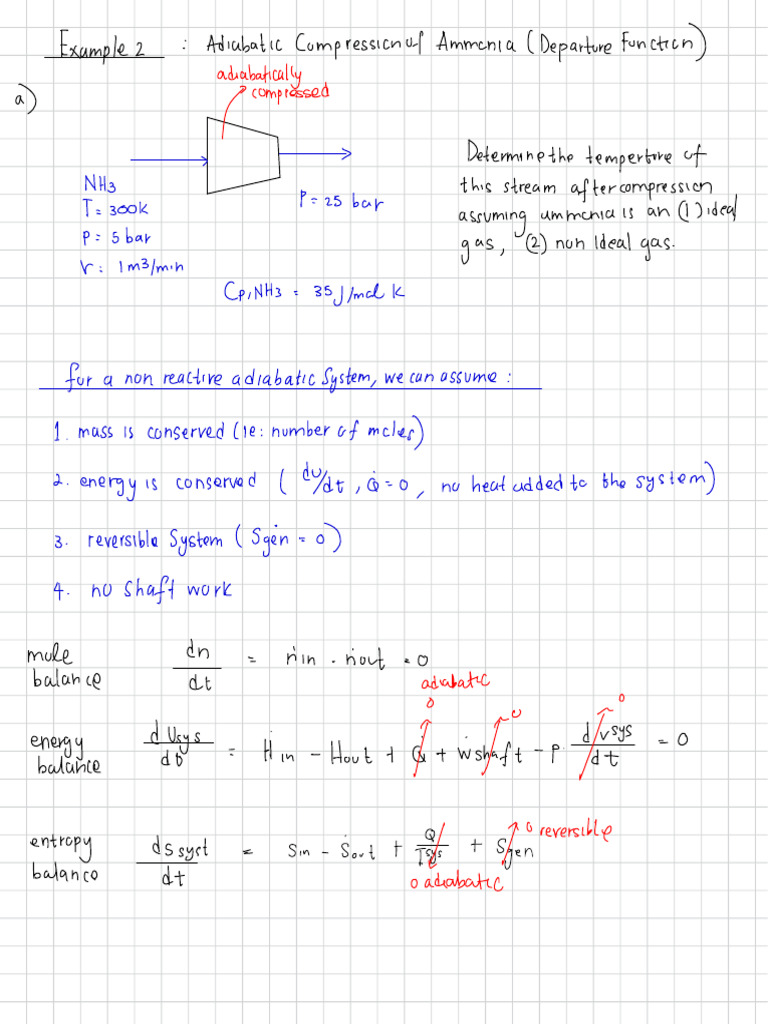 Example 2 : Adiabatic Compression of Ammonia (Departure Function)
adiabatically
compressed
a)
NH3
T= 300K
P= 5 bar
V: 1 m3/min
P= 25 bar
Cp,NH3 = 35 J/mol K
Determine the temperture of
this stream after compression
assuming ammonia is an (1) ideal
gas, (2) non ideal gas.
for a non reactive adiabatic system, we can assume :
1. mass is conserved (ie: number of moles)
2. energy is conserved ( dU/dt , Q̇ = 0 , no heat added to the system)
3. reversible System ( Ṡgen = 0 )
4. no shaft work
mole balance dn/dt = ṅin - ṅout = 0
adiabatic
0 0 0
energy balance dUsys/dt = Ḣin - Hout + Q + Ẇshaft - P dVsys/dt = 0
0 reversible
entropy balance dSsyst/dt = Sin - Ṡout + Q/Tsys + Sgen
0 adiabatic